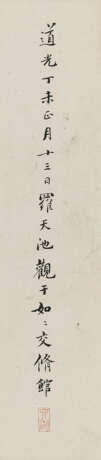 道光丁未正月十三日羅天池觀于如々交脩館